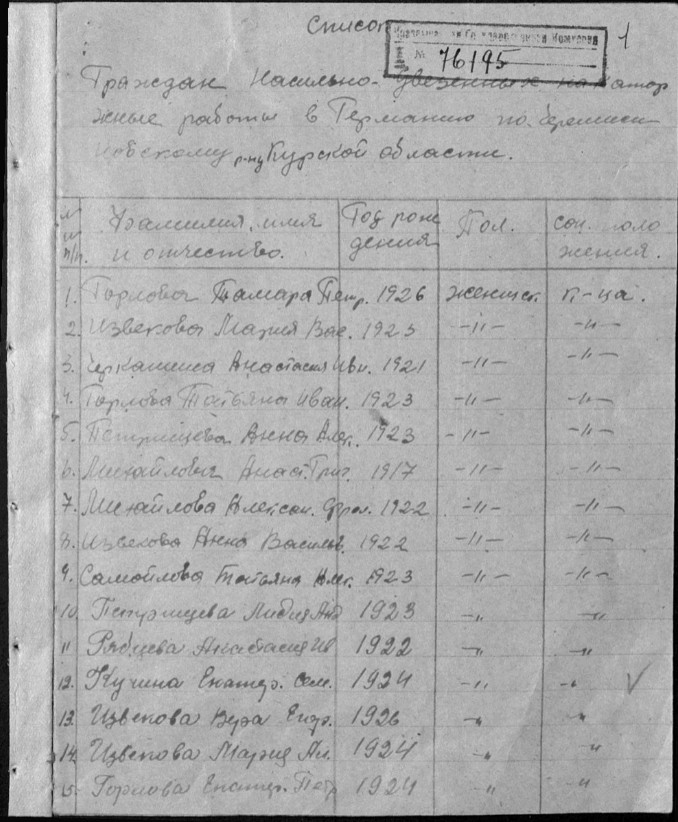 Список
1
№ 76195
Граждан насильно-увезенных на катор
жные работы в Германию по
р-ну Курской области.
№ Фамилия, имя Год рож Пол. соц. поло
п/п. и отчество. дения жения.
1. Горлова Тамара Петр. 1926 женщск. к-ца.
2. Извекова Мария Вас. 1923 -"- -"-
3. Черкашина Анастасия Ивн. 1921 -"- -"-
4. Горлова Татьяна Иван. 1923 -"- -"-
5. Анна Алек. 1923 -"- -"-
6. Михайлова Анаст. Григ. 1917 -"- -"-
7. Михайлова Алексан. Фрол. 1922 -"- -"-
8. Извекова Анна Васильв. 1922 -"- -"-
9. Самойлова Татьяна Алек. 1923 -"- -"-
10. Лидия Анд 1923 -"- -"-
11 Рябцева Анастасия Ив 1922 -"- -"-
12. Кучина Екатер. Сем. 1924 -"- -"- ✓
13. Извекова Вера Егор. 1926 -"- -"-
14. Извекова Мария Ал. 1924 -"- -"-
15. Горлова Екатер. Петр 1924 -"- -"-